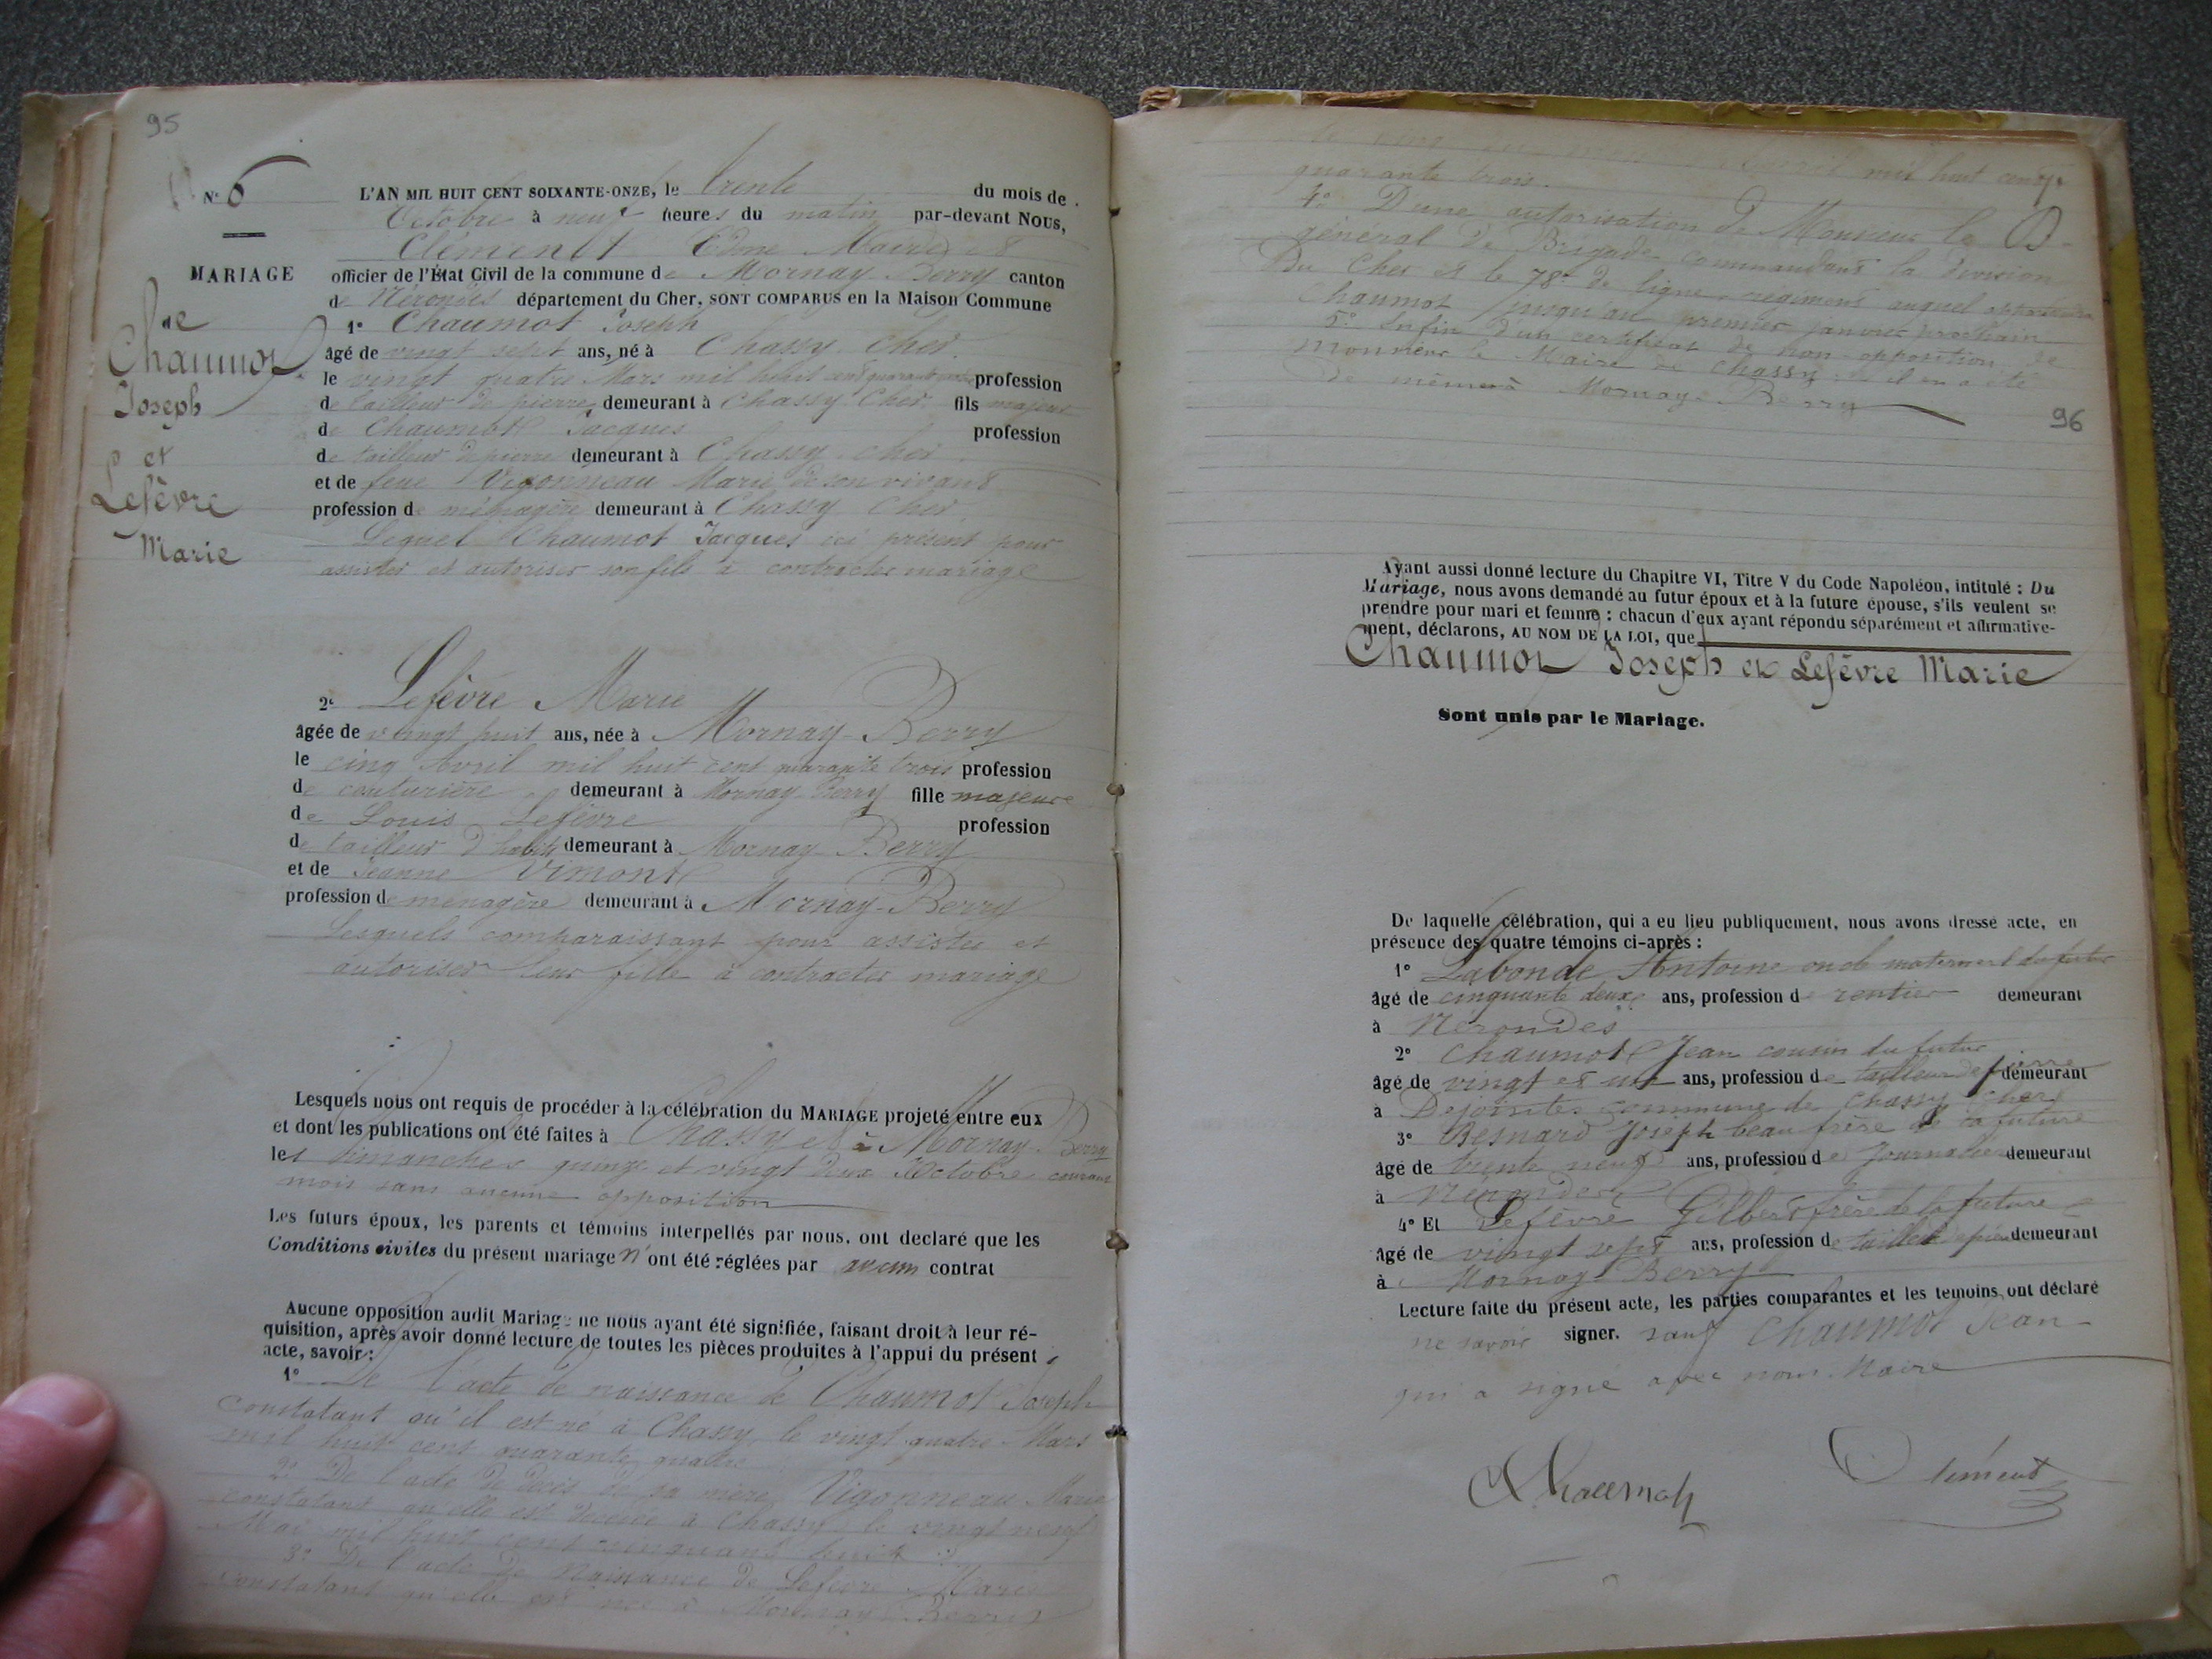 95
N° 6
L'AN MIL HUIT CENT SOIXANTE-ONZE, le trente du mois de
Octobre à neuf heures du matin par-devant Nous,
Clément Edme Maire et
officier de l'État Civil de la commune de Mornay-Berry canton
de Nérondes département du Cher, SONT COMPARUS en la Maison Commune
MARIAGE
de
Chaumot
Joseph
et
Lefèvre
Marie
1° Chaumot Joseph
âgé de vingt sept ans, né à Chassy Cher
le vingt quatre Mars mil huit cent quarante quatre profession
de tailleur de pierre demeurant à Chassy Cher fils majeur
de Chaumot Jacques profession
de tailleur de pierre demeurant à Chassy Cher
et de feue Vigonneau Marie de son vivant
profession de ménagère demeurant à Chassy Cher
Lequel Chaumot Jacques ici présent pour
assister et autoriser son fils à contracter mariage
2° Lefèvre Marie
âgée de vingt huit ans, née à Mornay-Berry
le cinq Avril mil huit cent quarante trois profession
de couturière demeurant à Mornay Berry fille majeure
de Louis Lefèvre profession
de tailleur d'habits demeurant à Mornay-Berry
et de Jeanne Vimont
profession de ménagère demeurant à Mornay-Berry
Lesquels comparaissant pour assister et
autoriser leur fille à contracter mariage
Lesquels nous ont requis de procéder à la célébration du MARIAGE projeté entre eux
et dont les publications ont été faites à Chassy et à Mornay-Berry
les dimanches quinze et vingt deux Octobre courant
mois sans aucune opposition
Les futurs époux, les parents et témoins interpellés par nous, ont declaré que les
Conditions civiles du présent mariage n'ont été réglées par aucun contrat
Aucune opposition audit Mariage ne nous ayant été signifiée, faisant droit à leur ré-
quisition, après avoir donné lecture de toutes les pièces produites à l'appui du présent
acte, savoir:
1° De l'acte de naissance de Chaumot Joseph
constatant qu'il est né à Chassy le vingt quatre Mars
mil huit cent quarante quatre
2° De l'acte de décès de sa mère Vigonneau Marie
constatant qu'elle est décédée à Chassy le vingt neuf
Mai mil huit cent cinquante huit
3° De l'acte de naissance de Lefèvre Marie
constatant qu'elle est née à Mornay Berry
le cinq mil huit cent
quarante trois.
4° D'une autorisation de Monsieur le
général de Brigade commandant la division
du Cher et le 78e de ligne régiment auquel
Chaumot jusqu'au premier janvier prochain
5° Enfin d'un certificat de non-opposition de
Monsieur le Maire de Chassy il en a été
de même à Mornay-Berry
96
Ayant aussi donné lecture du Chapitre VI, Titre V du Code Napoléon, intitulé : Du
Mariage, nous avons demandé au futur époux et à la future épouse, s'ils veulent se
prendre pour mari et femme : chacun d'eux ayant répondu séparément et affirmative-
ment, déclarons, AU NOM DE LA LOI, que
Chaumot Joseph et Lefèvre Marie
Sont unis par le Mariage.
De laquelle célébration, qui a eu lieu publiquement, nous avons dressé acte, en
présence des quatre témoins ci-après :
1° Labonde Antoine oncle maternel du futur
âgé de cinquante deux ans, profession de rentier demeurant
à Nérondes
2° Chaumot Jean cousin du futur
âgé de vingt et un ans, profession de tailleur de pierre demeurant
à Dejointes commune de Chassy Cher
3° Besnard Joseph beau frère de la future
âgé de trente neuf ans, profession de Journalier demeurant
à Nérondes
4° Et Lefèvre Gilbert frère de la future
âgé de vingt sept ans, profession de tailleur de pierre demeurant
à Mornay-Berry
Lecture faite du présent acte, les parties comparantes et les témoins ont déclaré
ne savoir signer. sauf Chaumot Jean
qui a signé avec nous Maire
Chaumot
Clément